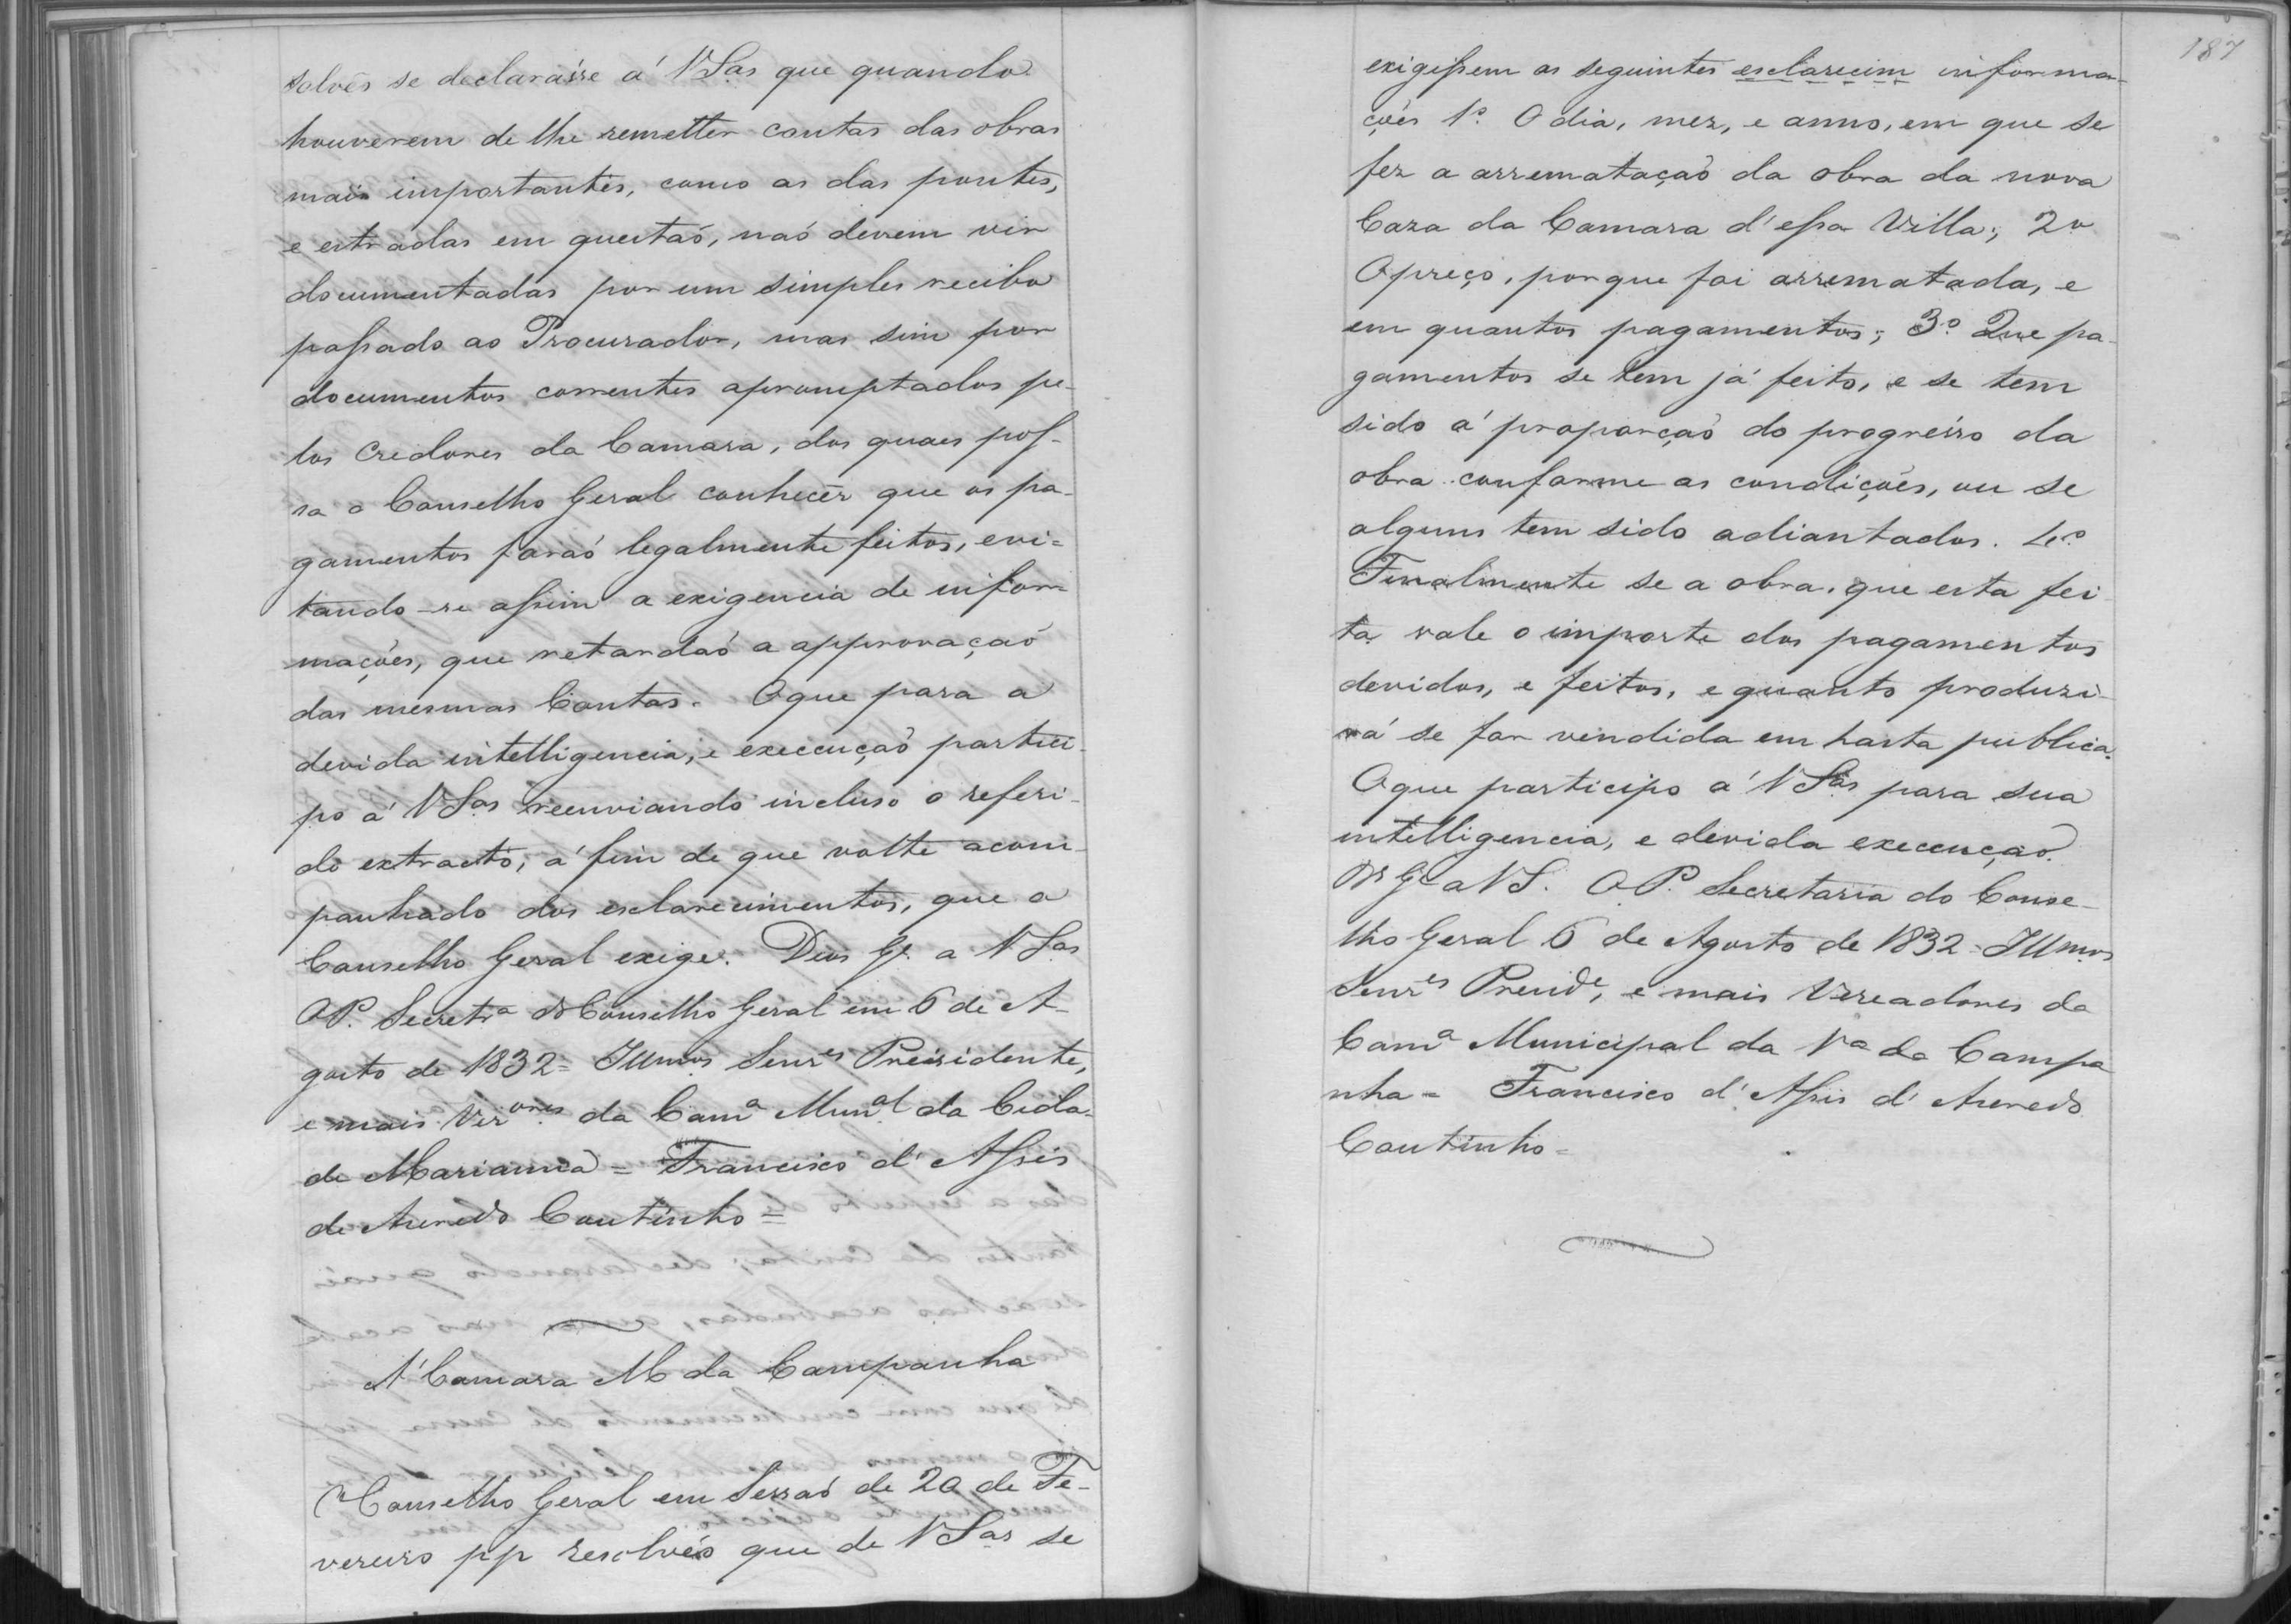 solvêo se declarásse a' VSas que quando
houverem de lhe remetter contas das obras
mais importantes, como as das pontes,
e estradas em questaõ, naõ devem vir
documentadas por um simples recibo
passado ao Procurador, mas sim por
documentos correntes apromptados pe-
los Credores da Camara, dos quaes pos-
sa o Conselho Geral conhecêr que os pa-
gamentos faraõ legalmente feitos, evi=
tando-se assim a exigencia de infor-
mações, que retardaõ a approvaçaõ
das mesmas Contas. Oque para a
devida intelligencia, e execuçaõ partici-
po á VSas reenviando incluso o referi-
do extracto, a' fim de que volte acom-
panhado dos esclarecimentos, que o
Conselho Geral exige. Deos Ge. a VSas
OP. Secretra do Conselho Geral em 6 de A-
gosto de 1832= Illmos Senres Prezidente,
e mais Verores da Cama Munal da Cida-
de Marianna = Francisco d' Assis
de Azeredo Coutinho =
A' Camara M da Campanha
O Conselho Geral em Sessaõ de 20 de Fe-
vereiro pp resolvêo que de VSas se
187
exigissem as seguintes esclarecim informa-
ções 1º. O dia, mez, e anno, em que se
fez a arremataçaõ da obra da nova
Caza da Camara d'essa Villa; 2º
Opreço, porque foi arrematada, e
em quantos pagamentos; 3º. Que pa-
gamentos se tem já feito, e se tem
sido á proporçaõ do progrésso da
obra conforme as condições, ou se
alguns tem sido adiantados. 4º
Finalmente se a obra, que esta fei
ta vale o importe dos pagamentos
devidos, e feitos, e quanto produzi-
rá se for vendida em hasta publica.
Oque participo a' VSas para sua
intelligencia, e devida execuçaõ.
Ds Ge a VS. OP. Secretaria do Conse-
lho Geral 6 de Agosto de 1832= Illmos
Senres Prezide, e mais Vereadores da
Cama Municipal da Va da Campa
nha = Francisco d' Assis d' Azeredo
Coutinho =